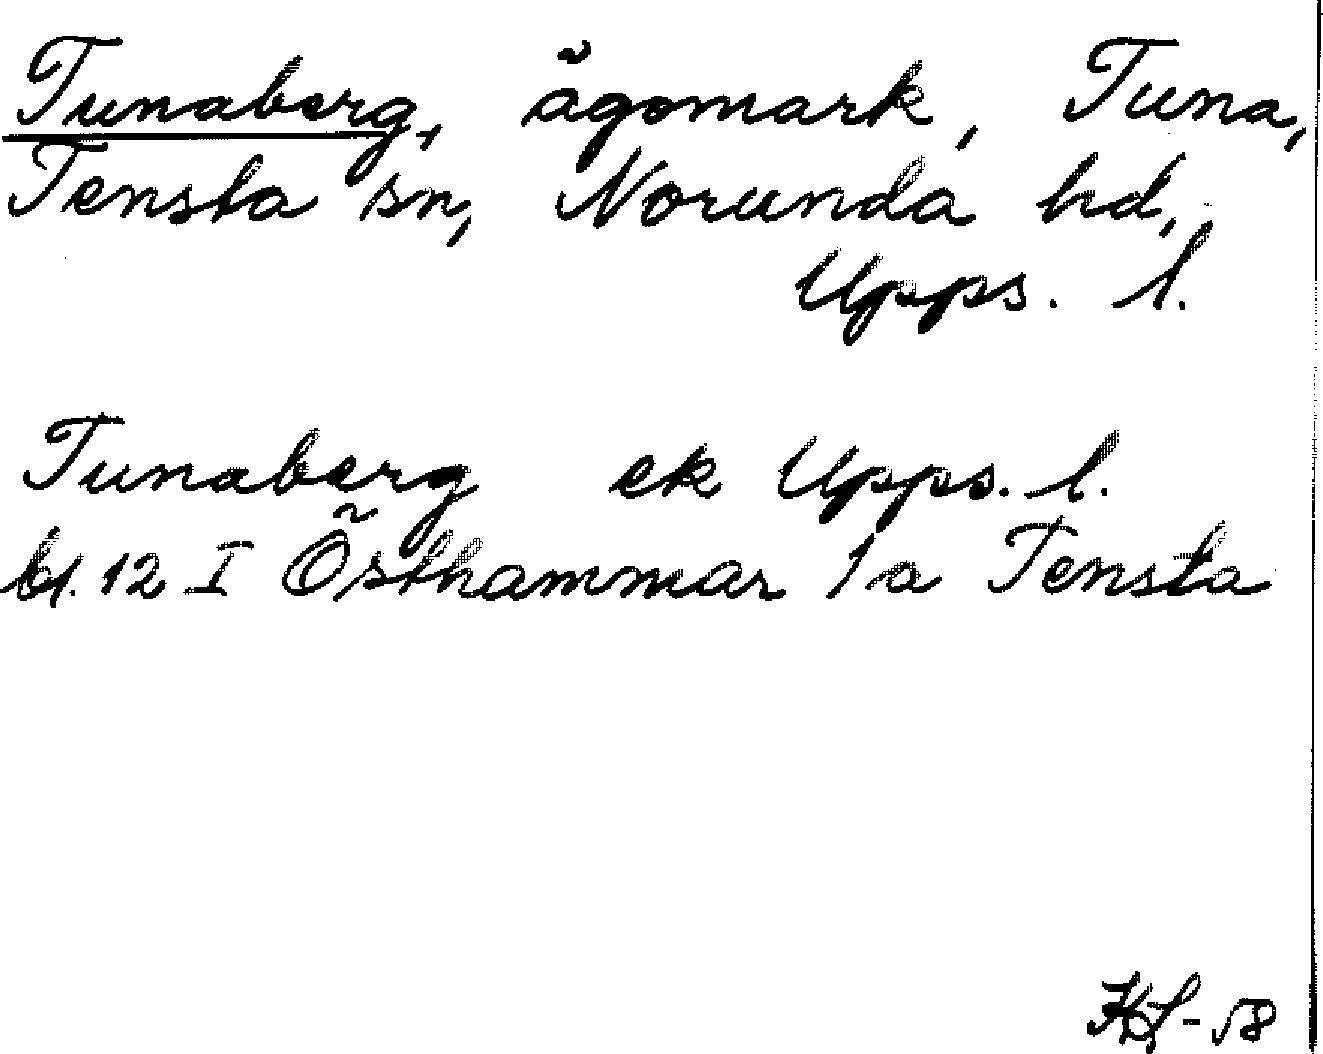 Tunaberg, ägomark, Tuna,
Tensta sn, Norunda hd,
Upps. l.
Tunaberg ek Upps. l.
bl. 12 I Östhammar 1a Tensta
-58